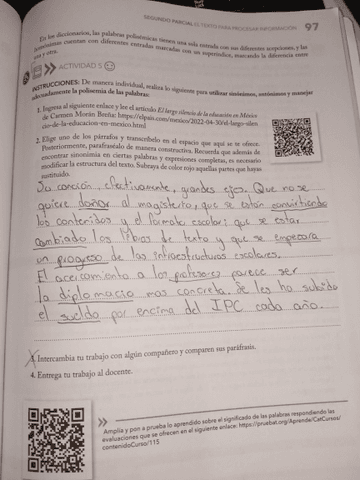 SEGUNDO PARCIAL EL TEXTO PARA PROCESAR INFORMACIÓN 97
En los diccionarios, las palabras polisémicas tienen una sola entrada con sus diferentes acepciones, y las
homónimas cuentan con diferentes entradas marcadas con un superíndice, marcando la diferencia entre
una y otra.
ACTIVIDAD 5
INSTRUCCIONES: De manera individual, realiza lo siguiente para utilizar sinónimos, antónimos y manejar
adecuadamente la polisemia de las palabras:
1. Ingresa al siguiente enlace y lee el artículo El largo silencio de la educación en México
de Carmen Morán Breña: https://elpais.com/mexico/2022-04-30/el-largo-silen
cio-de-la-educacion-en-mexico.html
2. Elige uno de los párrafos y transcríbelo en el espacio que aquí se te ofrece.
Posteriormente, parafraséalo de manera constructiva. Recuerda que además de
encontrar sinonimia en ciertas palabras y expresiones completas, es necesario
modificar la estructura del texto. Subraya de color rojo aquellas partes que hayas
sustituido.
Su canción, efectivamente, grandes ejes. Que no se
quiere dañar al magisterio, que se están convirtiendo
los contenidos y el formato escolar; que se están
cambiado los libros de texto y que se empezara
un progreso de las infraestructuras escolares.
El acercamiento a los profesores parece ser
la diplomacia mas concreta. Se les ha subido
el sueldo por encima del IPC cada año.
3. Intercambia tu trabajo con algún compañero y comparen sus paráfrasis.
4. Entrega tu trabajo al docente.
Amplía y pon a prueba lo aprendido sobre el significado de las palabras respondiendo las
evaluaciones que se ofrecen en el siguiente enlace: https://pruebat.org/Aprende/CatCursos/
contenidoCurso/115